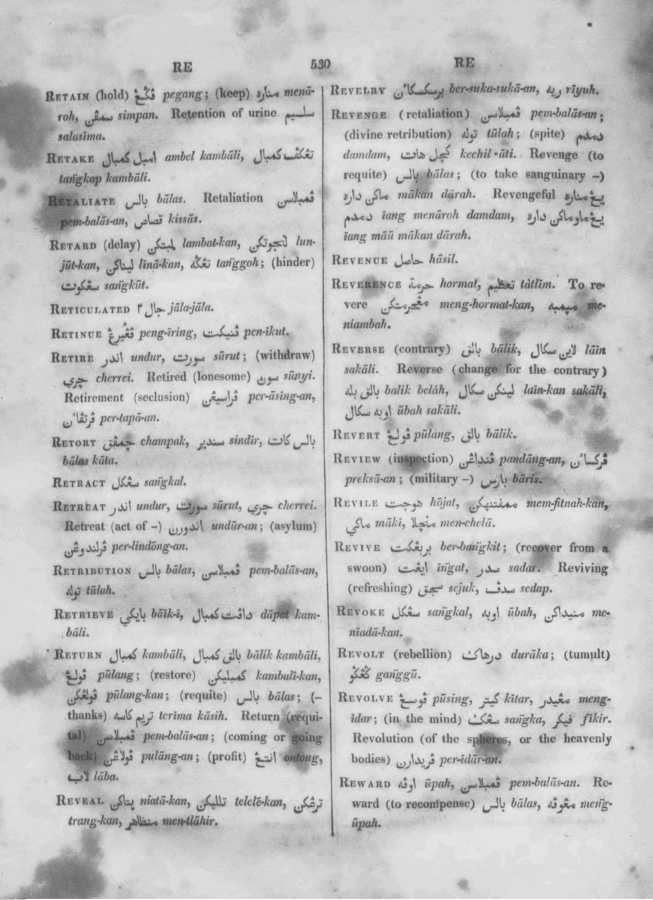 RE 530 RE
RETAIN (hold) ڤݢڠ pegang; (keep) مناره menā-
roh, سمڤن simpan. Retention of urine سلسيم
salasīma.
RETAKE امبل كمبال ambel kambāli, تڠكڤ كمبال
tang̃kap kambāli.
RETALIATE بالس bālas. Retaliation ڤمبلاسن
pem-balās-an, قصاص kissās.
RETARD (delay) لمبتكن lambat-kan, لنجوتكن lun-
jūt-kan, ليناكن linā-kan, تڠݢه tang̃goh; (hinder)
سڠكوت sang̃kūt.
RETICULATED جال٢ jāla-jāla.
RETINUE ڤڠيريڠ peng-īring, ڤنيكت pen-īkut.
RETIRE اندر undur, سورت sūrut; (withdraw)
چري cherrei. Retired (lonesome) سوڽي sūnyi.
Retirement (seclusion) ڤراسيڠن per-āsing-an,
ڤرتڤاءن per-tapā-an.
RETORT چمڤق champak, سندير sindir, بالس كات
bālas kāta.
RETRACT سڠكل sang̃kal.
RETREAT اندر undur, سورت sūrut, چري cherrei.
Retreat (act of -) اندورن undūr-an; (asylum)
ڤرلندوڠن per-lindōng-an.
RETRIBUTION بالس bālas, ڤمبلاسن pem-balās-an,
توله tūlah.
RETRIEVE بايكي bāik-i, داڤت كمبال dāpat kam-
bāli.
RETURN كمبال kambāli, بالق كمبال bālik kambāli,
ڤولڠ pūlang; (restore) كمبليكن kambali-kan,
ڤولڠكن pūlang-kan; (requite) بالس bālas; (-
thanks) تريم كاسه terīma kāsih. Return (requi-
tal) ڤمبلاسن pem-balās-an; (coming or going
back) ڤولاڠن pulāng-an; (profit) انتڠ ontong,
لاب lāba.
REVEAL ڽتاكن niatā-kan, تلليكن telelē-kan, ترڠكن
trang-kan, منظاهر men-tlāhir.
REVELRY برسكسكاءن ber-suka-sukā-an, ريه rīyuh.
REVENGE (retaliation) ڤمبلاسن pem-balās-an;
(divine retribution) توله tūlah; (spite) دمدم
damdam, كچل هات kechil-āti. Revenge (to
requite) بالس bālas; (to take sanguinary -)
ماكن داره mākan dārah. Revengeful يڠ مناره
دمدم īang menāroh damdam, يڠ ماو ماكن داره
īang māū mākan dārah.
REVENUE حاصل hāsil.
REVERENCE حرمة hormat, تعظيم tātlīm. To re-
vere مڠحرمتكن meng-hormat-kan, ميمبه me-
niambah.
REVERSE (contrary) بالق bālik, لاين سكال lāin
sakāli. Reverse (change for the contrary)
بالق بله balik belāh, لينكن سكال laīn-kan sakāli,
اوبه سكال ūbah sakāli.
REVERT ڤولڠ pūlang, بالق bālik.
REVIEW (inspection) ڤنداڠن pandāng-an, ڤركساءن
preksā-an; (military -) بارس bāris.
REVILE هوجت hōjat, ممفتنهكن mem-fitnah-kan,
ماكي māki, منچلا men-chelā.
REVIVE بربڠكت ber-bang̃kit; (recover from a
swoon) ايڠت īng̃at, سدر sadar. Reviving
(refreshing) سجق sejuk, سدڤ sedap.
REVOKE سڠكل sang̃kal, اوبه ūbah, منيداكن me-
niadā-kan.
REVOLT (rebellion) درهاك durāka; (tumult)
ݢڠݢو gang̃gū.
REVOLVE ڤوسڠ pūsing, كيتر kītar, مڠيدر meng-
īdar; (in the mind) سڠك sang̃ka, فيكر fīkir.
Revolution (of the spheres, or the heavenly
bodies) ڤريدارن per-idār-an.
REWARD اوڤه ūpah, ڤمبلاسن pem-balās-an. Re-
ward (to recompense) بالس bālas, مڠوڤه meng̃-
ūpah.